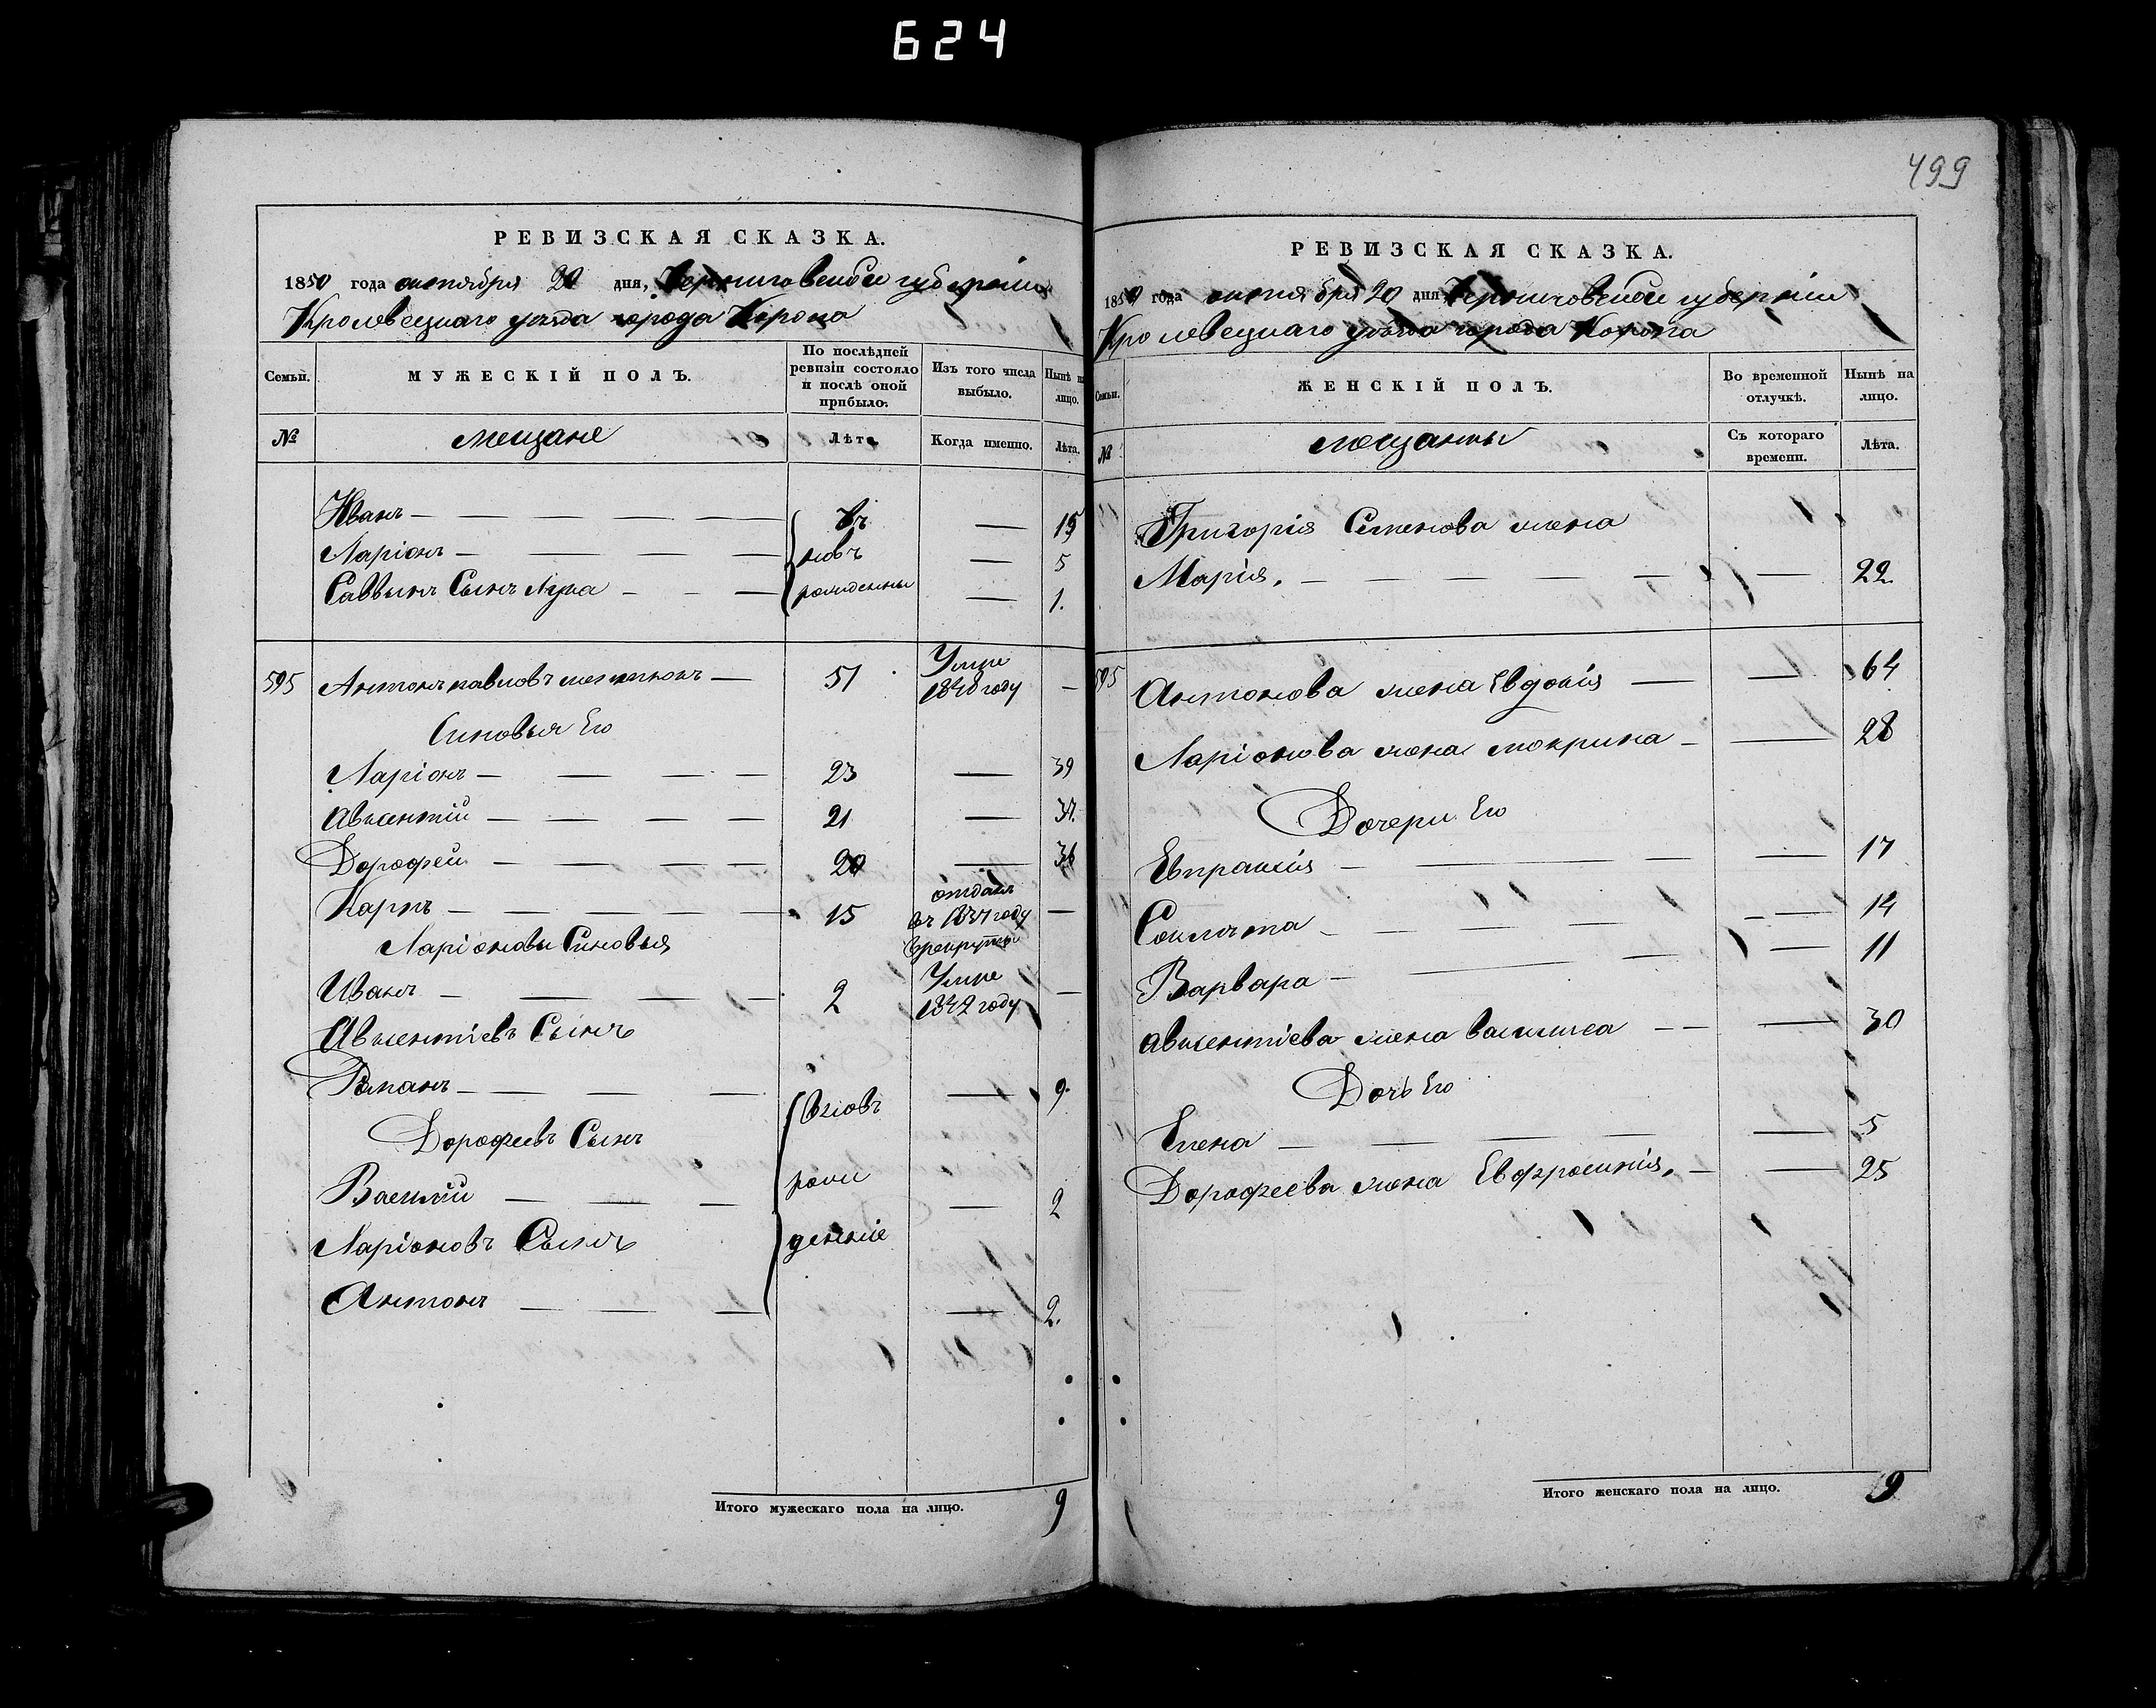 624
499
РЕВИЗСКАЯ СКАЗКА.
1850 года октября 20 дня, Черниговской губернии
Кролевецкаго уѣзда города Коропа
Семьи.
МУЖЕСКІЙ ПОЛЪ.
По послѣдней ревизіи состояло и послѣ оной прибыло.
Изъ того числа выбыло.
Нынѣ на лицо.
№
мещане
Лѣта
Когда именно.
Лѣта.
Иванъ — — — — Въ — 15
Ларіонъ — — — — новъ — 5
Саввинъ Сынъ Лука — — — рожденны — 1.
595 Антонъ павловъ — 51 Умре 1848 году —
Синовья Его
Ларіонъ — — — — 23 — 39
Авксентій — — — — 21 — 37.
Дорофей — — — — 20 — 36
Карпъ — — — — — 15 отданъ въ 1837 году врекруты —
Ларіоновы Синовья
Иванъ — — — — 2 Умре 1842 году —
Авксентіевъ Сынъ
Романъ — — — — 9.
Дорофеевъ Сынъ
вновь
Василій — — — рож — 2
Ларіоновъ Сынъ
деннiе
Антонъ — — — — 2.
Итого мужескаго пола на лицо. 9
РЕВИЗСКАЯ СКАЗКА.
1850 года октября 20 дня Черниговской губерніи
Кролевецкаго уѣзда города Коропа
Семьи.
ЖЕНСКІЙ ПОЛЪ.
Во временной отлучкѣ.
Нынѣ на лицо.
№
мещанты
Съ котораго времени.
Лѣта.
Григорія Семенова жена
Марія. — — — — — — 22.
595 Антонова жена Евдокія — — 64
Ларіонова жена мокрина — — 28
Дочери Его
Евпраксія — — — — 17
— — — — 14
Варвара — — — — 11
Авксентіева жена Василиса — — — 30
Дочь Его
Елена — — — — — 5
Дорофеева жена Евфросинія. — — 25
Итого женскаго пола на лицо. 9